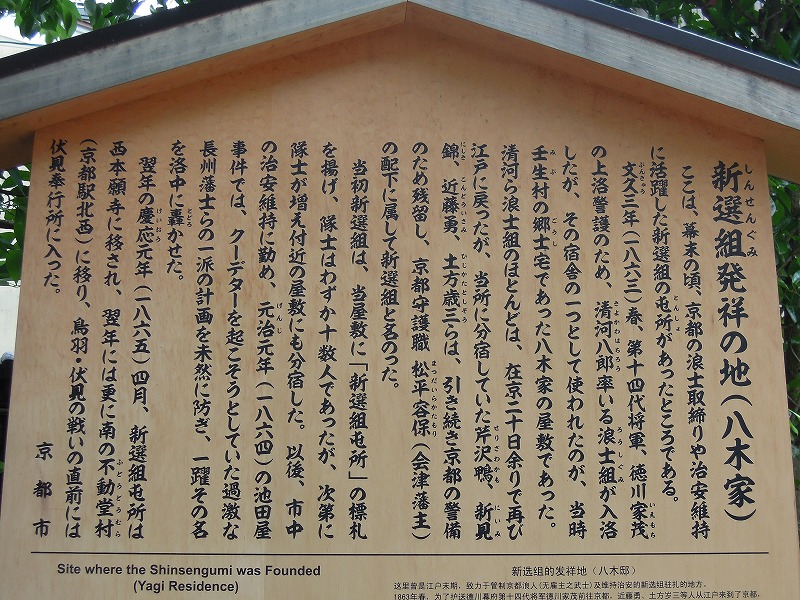 新選組発祥の地(八木家)
ここは、幕末の頃、京都の浪士取締りや治安維持
に活躍した新選組の屯所があったところである。
文久三年(一八六三)春、第十四代将軍、徳川家茂
の上洛警護のため、清河八郎率いる浪士組が入洛
したが、その宿舎の一つとして使われたのが、当時
壬生村の郷士宅であった八木家の屋敷であった。
清河ら浪士組のほとんどは、在京二十日余りで再び
江戸に戻ったが、当所に分宿していた芹沢鴨、新見
錦、近藤勇、土方歳三らは、引き続き京都の警備
のため残留し、京都守護職 松平容保(会津藩主)
の配下に属して新選組と名のった。
当初新選組は、当屋敷に「新選組屯所」の標札
を揚げ、隊士はわずか十数人であったが、次第に
隊士が増え付近の屋敷にも分宿した。以後、市中
の治安維持に勤め、元治元年(一八六四)の池田屋
事件では、クーデターを起こそうとしていた過激な
長州藩士らの一派の計画を未然に防ぎ、一躍その名
を洛中に轟かせた。
翌年の慶応元年(一八六五)四月、新選組屯所は
西本願寺に移され、翌年には更に南の不動堂村
(京都駅北西)に移り、鳥羽・伏見の戦いの直前には
伏見奉行所に入った。
京都市
Site where the Shinsengumi was Founded
(Yagi Residence)
新选组的发祥地(八木邸)
这里曾是江户末期，致力于管制京都浪人(无雇主之武士)及维持治安的新选组驻扎的地方。
1863年春，为了护送德川幕府第十四代将军德川家茂前往京都，近藤勇、土方岁三等人从江户来到了京都，